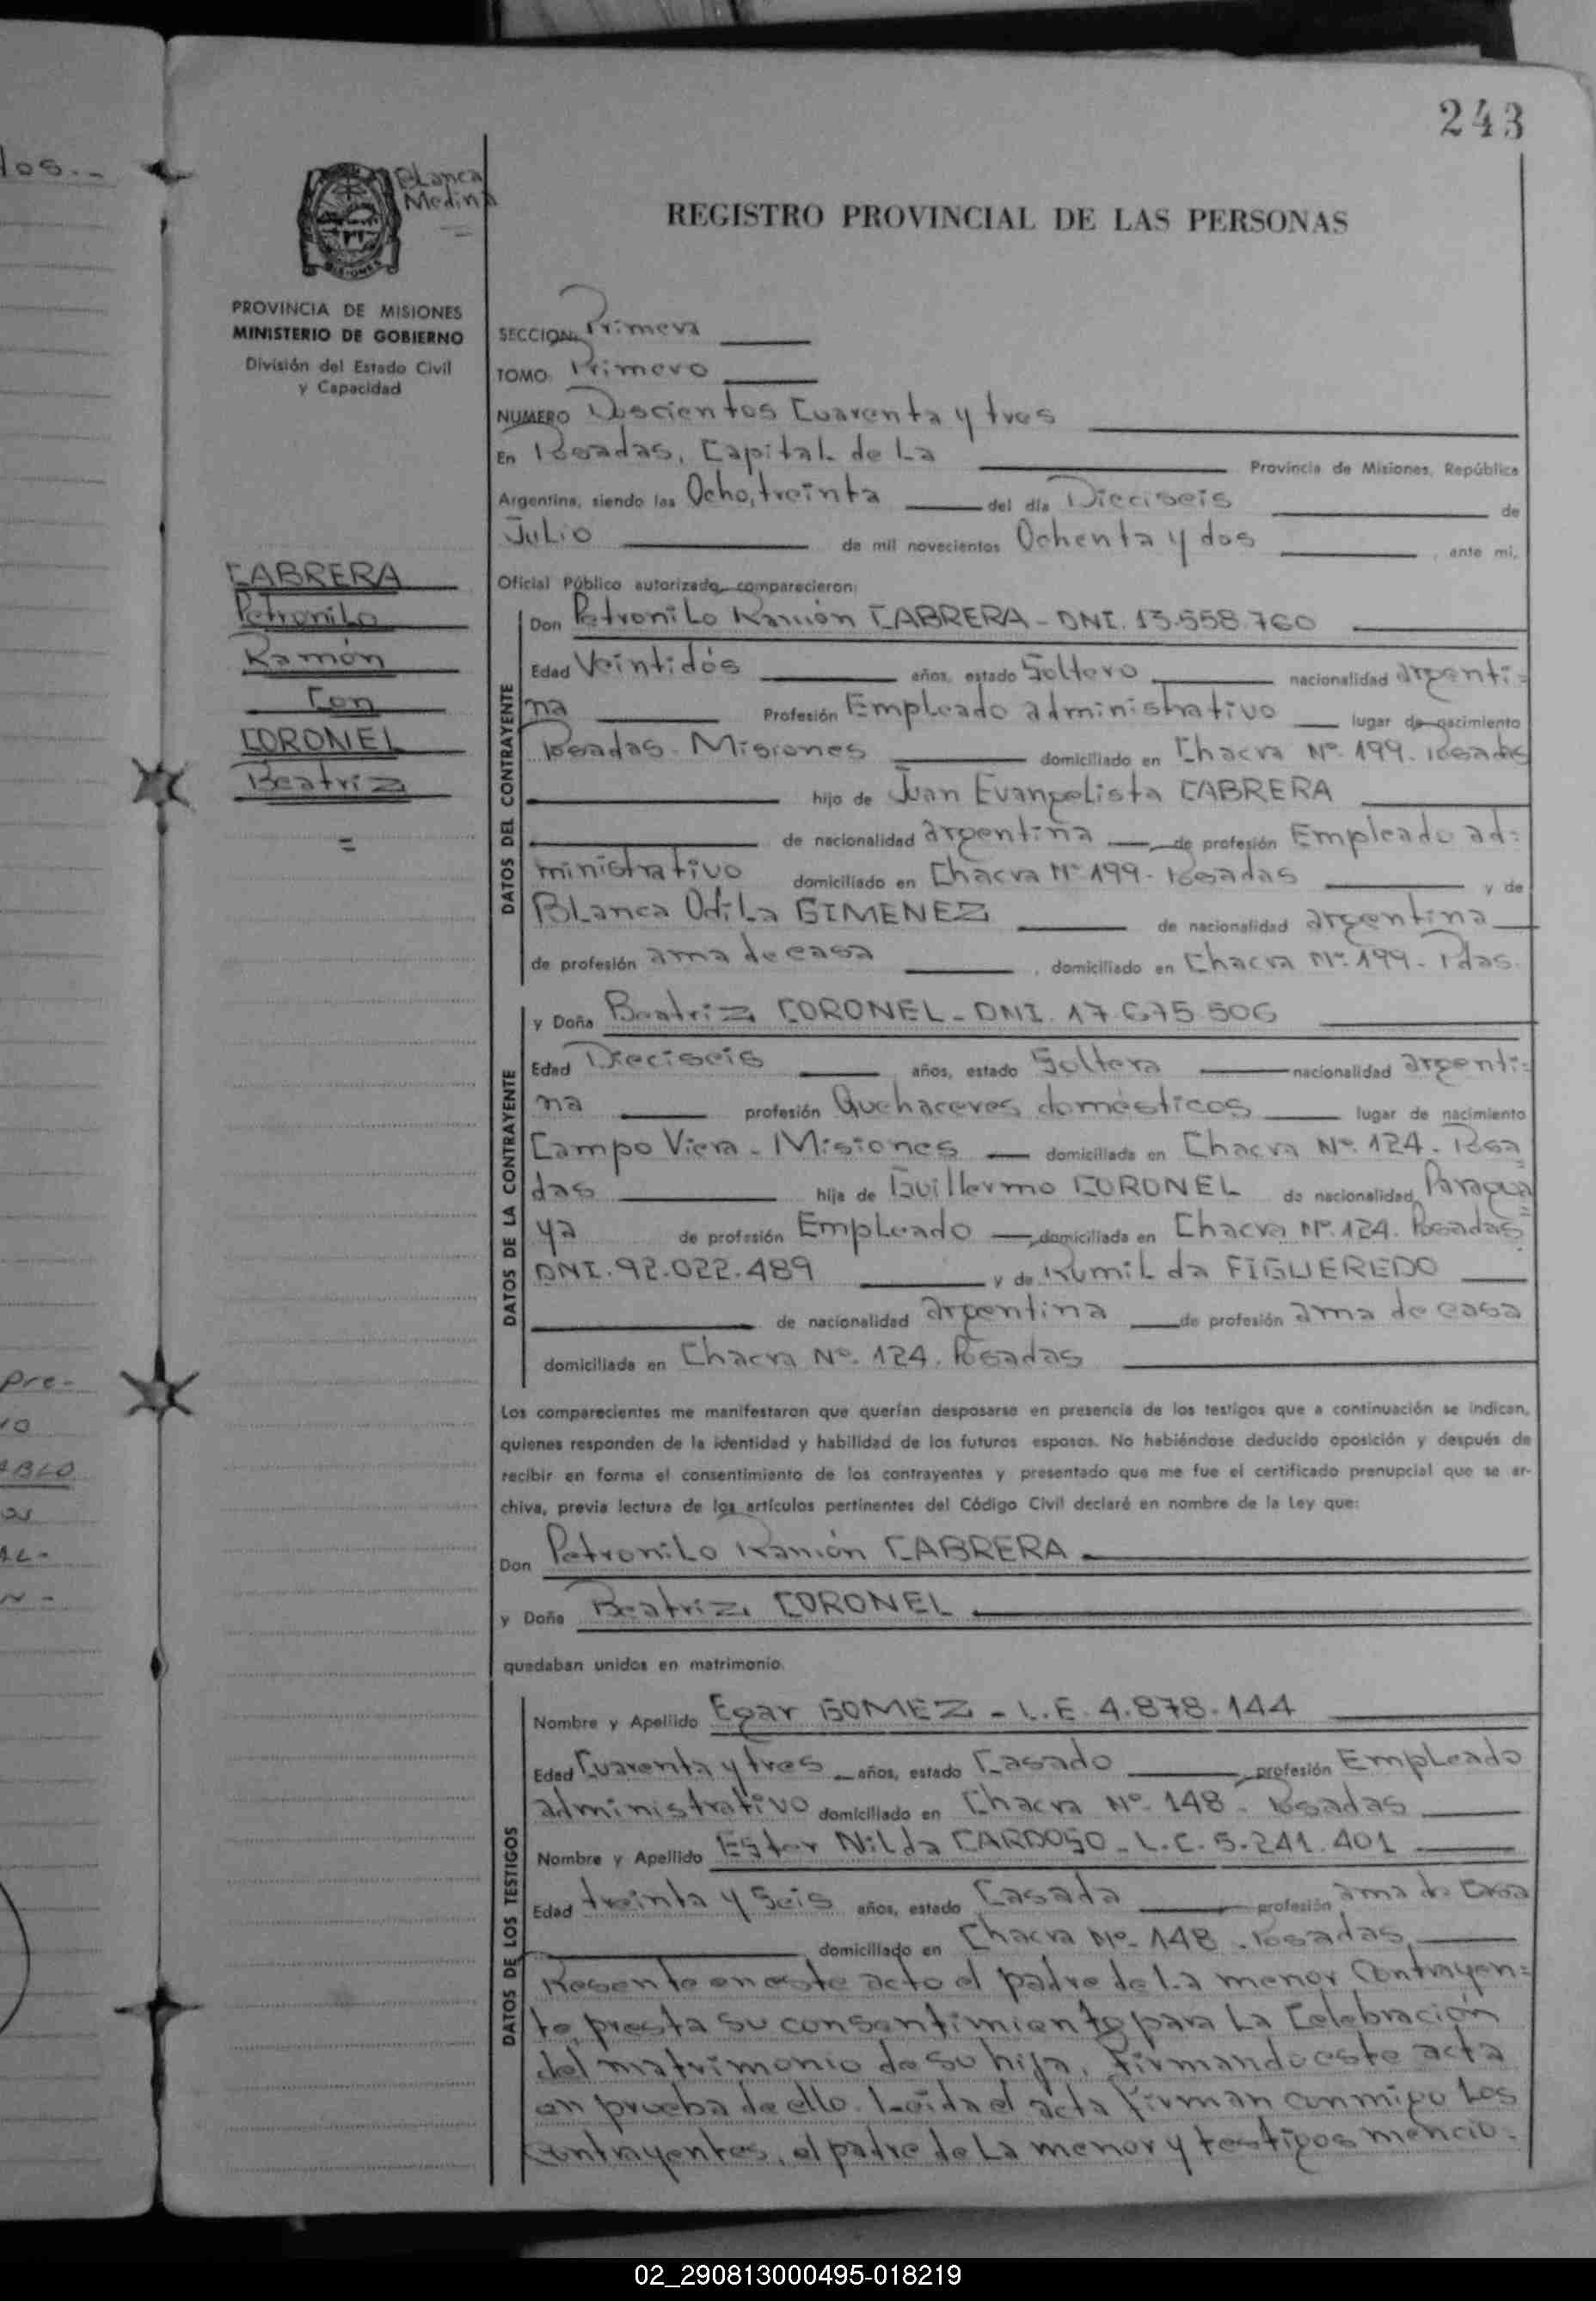 243
los.-
Blanca
Medina
REGISTRO PROVINCIAL DE LAS PERSONAS
PROVINCIA DE MISIONES
MINISTERIO DE GOBIERNO
División del Estado Civil
y Capacidad
SECCION: Primera
TOMO: Primero
NUMERO Doscientos Cuarenta y tres
En Posadas, Capital de La Provincia de Misiones, República
Argentina, siendo las Ocho, treinta del día Dieciseis de
Julio de mil novecientos Ochenta y dos, ante mi,
Oficial Público autorizado, comparecieron:
CABRERA
Petronilo
Ramón
Con
CORONEL
Beatriz
=
DATOS DEL CONTRAYENTE
Don Petronilo Ramón CABRERA - DNI. 13.558.760
Edad Veintidós años, estado Soltero nacionalidad argenti=
na Profesión Empleado administrativo lugar de nacimiento
Posadas - Misiones domiciliado en Chacra Nº 199. Posadas
hijo de Juan Evangelista CABRERA
de nacionalidad argentina, de profesión Empleado ad=
ministrativo domiciliado en Chacra Nº 199 - Posadas y de
Blanca Odila GIMENEZ de nacionalidad argentina
de profesión ama de casa, domiciliado en Chacra Nº 199 - Pdas.
DATOS DE LA CONTRAYENTE
y Doña Beatriz CORONEL - DNI. 17.675.506
Edad Dieciseis años, estado Soltera nacionalidad argenti=
na profesión Quehaceres domésticos lugar de nacimiento
Campo Viera - Misiones domiciliada en Chacra Nº. 124. Posa=
das hija de Guillermo CORONEL de nacionalidad Paragua=
ya de profesión Empleado, domiciliada en Chacra Nº. 124. Posadas
DNI. 92.022.489 y de Rumilda FIGUEREDO
de nacionalidad argentina de profesión ama de casa
domiciliada en Chacra Nº. 124. Posadas
Los comparecientes me manifestaron que querían desposarse en presencia de los testigos que a continuación se indican,
quienes responden de la identidad y habilidad de los futuros esposos. No habiéndose deducido oposición y después de
recibir en forma el consentimiento de los contrayentes y presentado que me fue el certificado prenupcial que se ar-
chiva, previa lectura de los artículos pertinentes del Código Civil declaré en nombre de la Ley que:
Don Petronilo Ramón CABRERA
y Doña Beatriz CORONEL
quedaban unidos en matrimonio.
DATOS DE LOS TESTIGOS
Nombre y Apellido Egar GOMEZ - L.E. 4.878.144
Edad Cuarenta y tres años, estado Casado, profesión Empleado
administrativo domiciliado en Chacra Nº. 148 - Posadas
Nombre y Apellido Ester Nilda CARDOSO - L.C. 5.241.401
Edad treinta y Seis años, estado Casada profesión ama de casa
domiciliado en Chacra Nº. 148 - Posadas,
Presente en este acto el padre de La menor Contrayen=
te, presta su consentimiento para La Celebración
del matrimonio de su hija, firmando este acta
en prueba de ello. Leída el acta firman conmigo Los
Contrayentes, el padre de La menor y testigos mencio-
pre-
ABLO
02_290813000495-018219